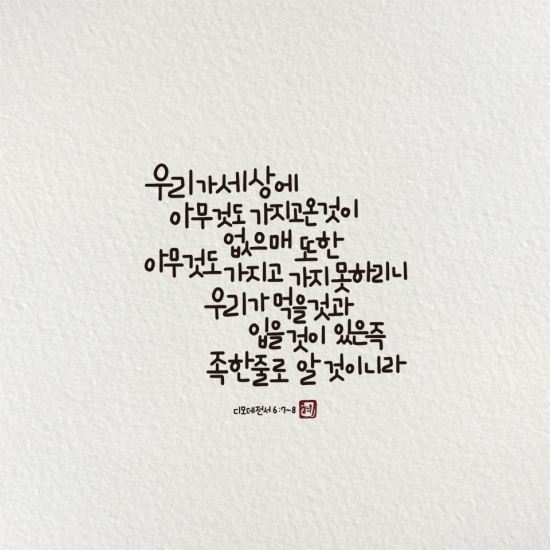 우리가 세상에
아무것도 가지고 온 것이
없으매 또한
아무것도 가지고 가지 못하리니
우리가 먹을 것과
입을 것이 있은즉
족한 줄로 알 것이니라
디모데전서 6:7~8 혜